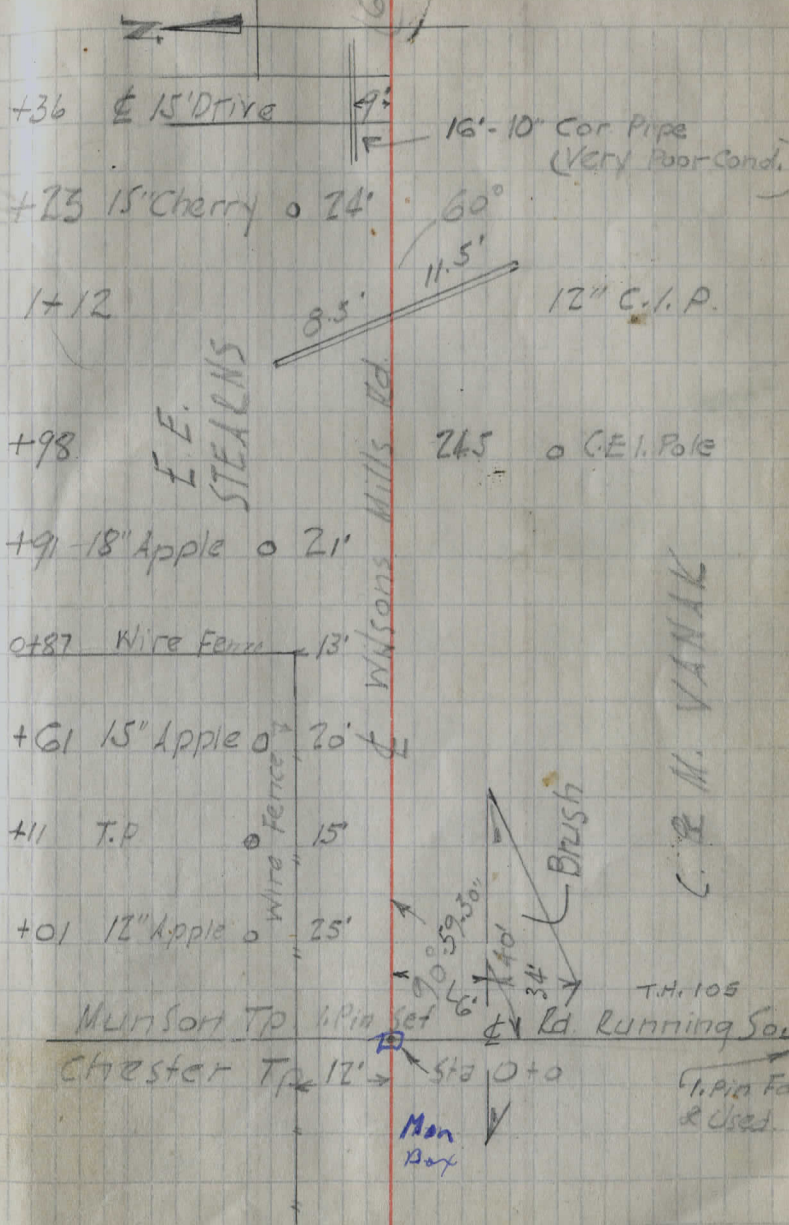 N.
+36 ₵ 15' Drive 9'
16'-10" Cor. Pipe
(Very Poor Cond.
+23 15" Cherry o 24' 60°
11.5'
1+12 8.5' 12" C.I.P.
E.E.
STEARNS
℄ Wilsons Mills Rd.
+98 24.5 o C.E.I. Pole
+91 18" Apple o 21'
0+87 Wire Fence 13'
+61 15" Apple o 20'
Wire Fence
C & M. VANAK
+11 T.P. 15'
Brush
+01 12" Apple o 25'
90°-59'-30"
40'
34'
6'
T.H. 105
Munson Tp. I.Pin Set ℄ Rd. Running Sou
Chester Tp. 12' Sta 0+0
I.Pin Fo
& Used.
Mon
Box